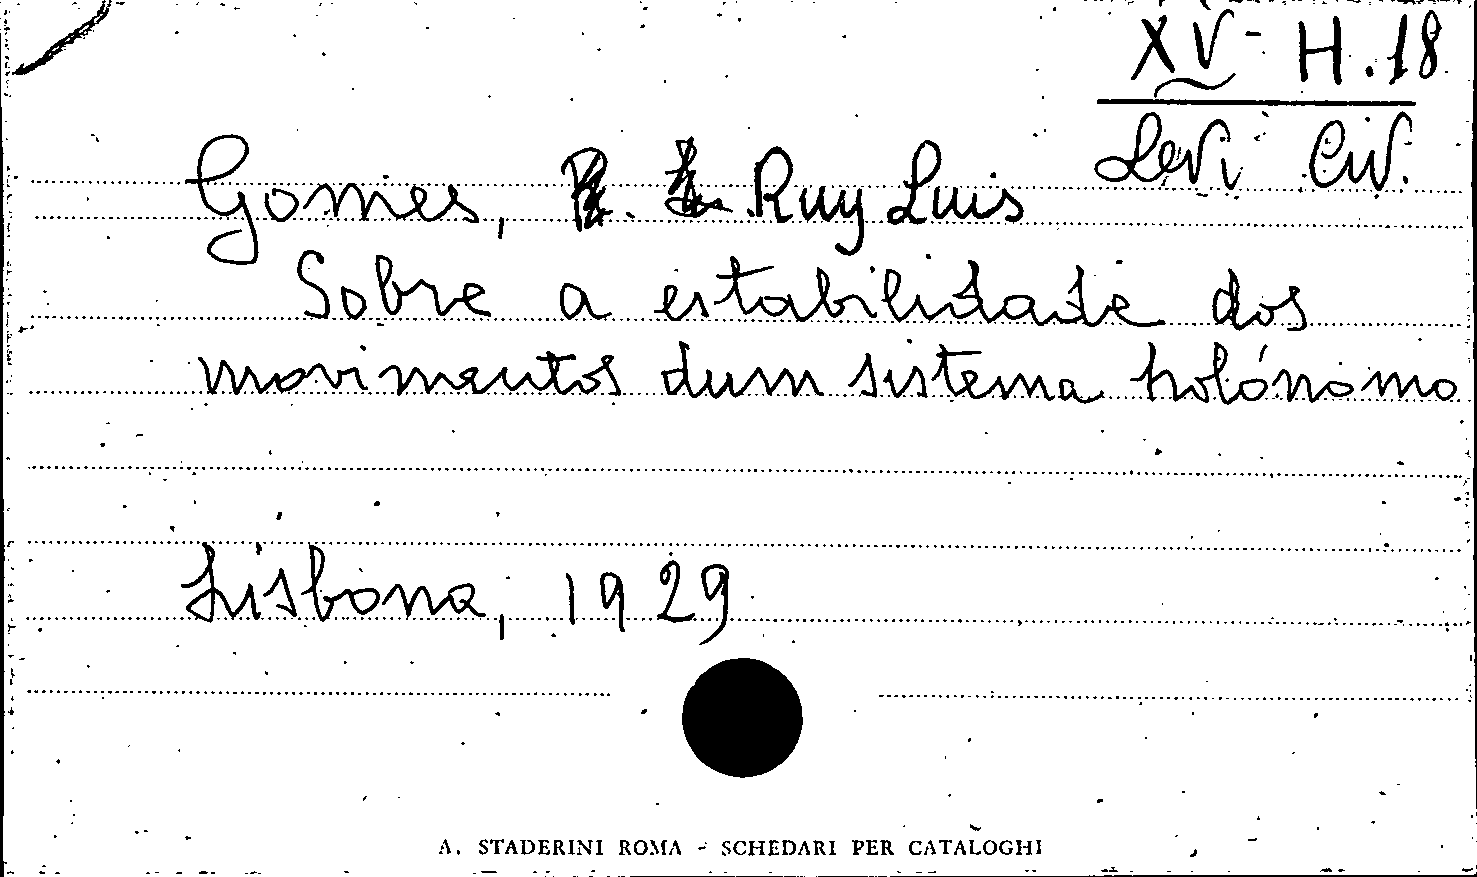 XV - H.18
Levi Civ.
Gomes, Ruy Luis
Sobre a estabilidade dos
movimentos dum sistema holónomo
Lisbona, 1929
A. STADERINI ROMA - SCHEDARI PER CATALOGHI